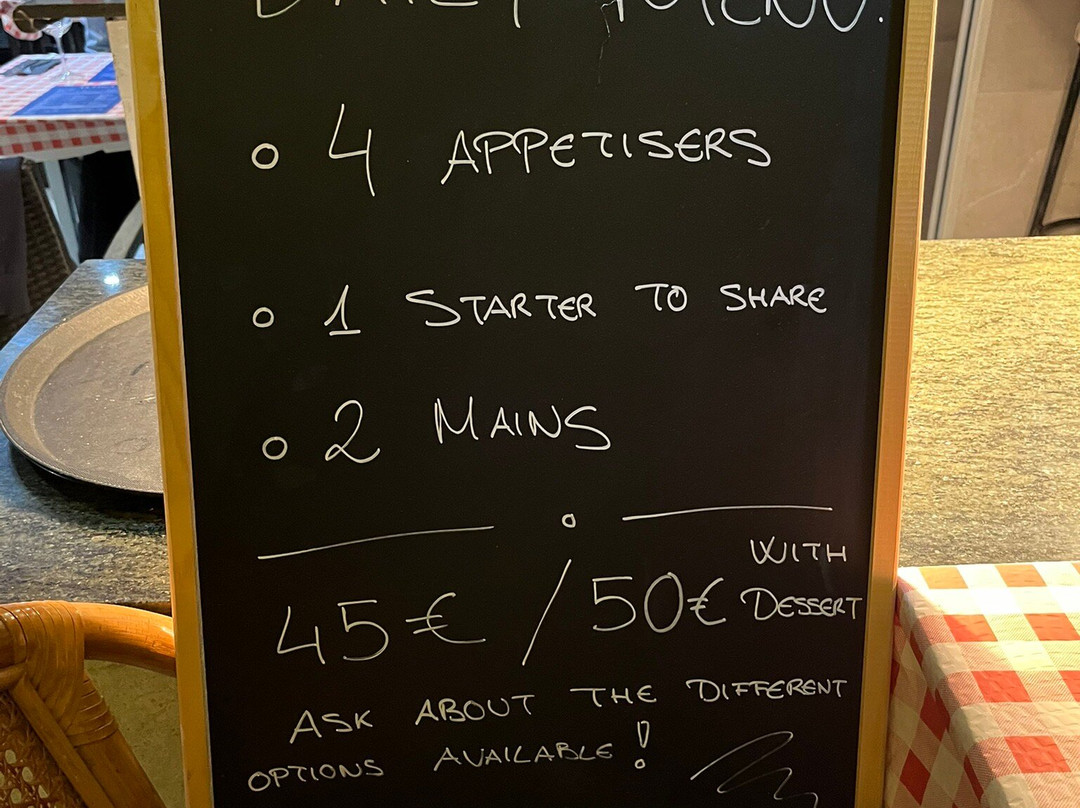 DAILY MENU.
o 4 APPETISERS
o 1 STARTER TO SHARE
o 2 MAINS
45€ / 50€ WITH DESSERT
ASK ABOUT THE DIFFERENT
OPTIONS AVAILABLE!